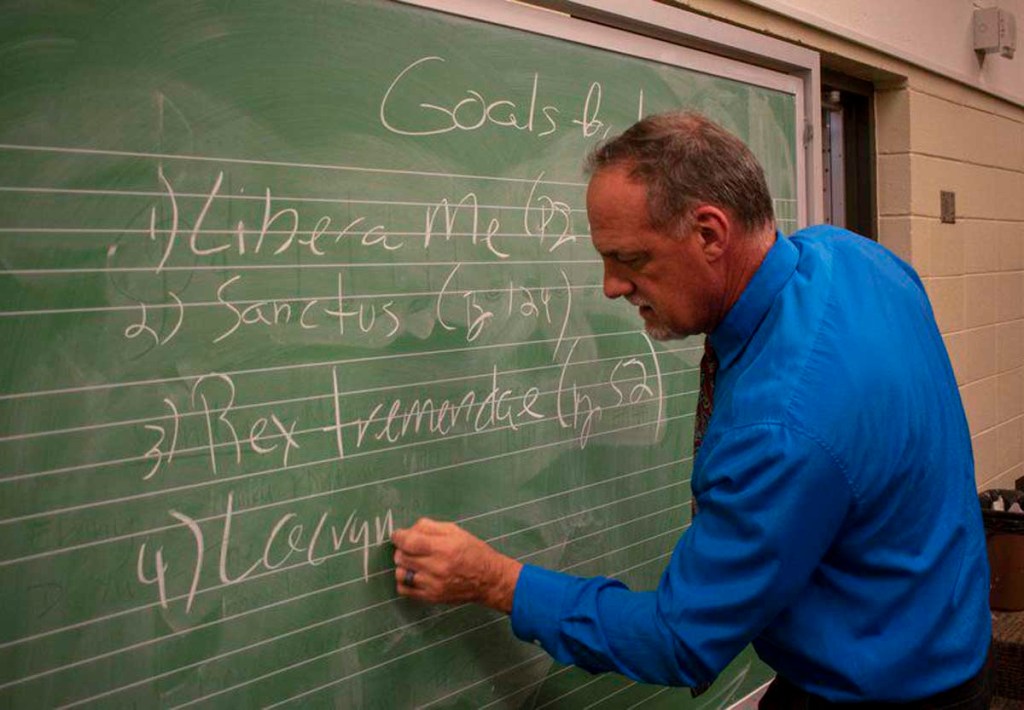 Goals
1) Libera Me
2) Sanctus (p 124)
3) Rex tremendae (p. 52)
4) Lacrym